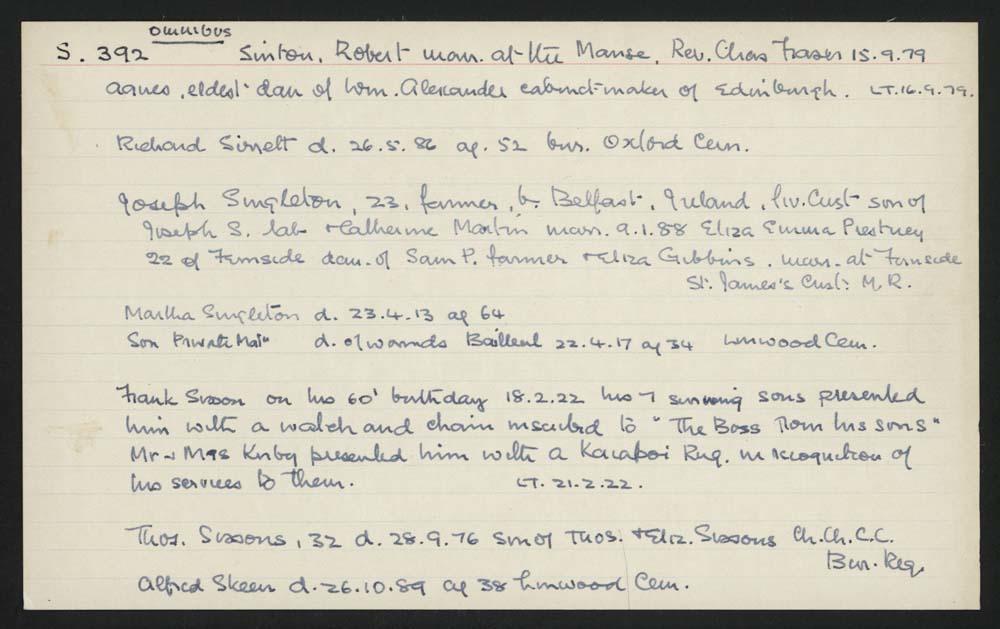 omnibus
S. 392 Sinton, Robert marr. at the Manse, Rev. Chas Fraser 15.9.79
Agnes, eldest dau of Wm. Alexander cabinet-maker of Edinburgh. LT.16.9.79.
Richard Sinnett d. 26.5.86 ag. 52 bur. Oxford Cem.
Joseph Singleton, 23, farmer, b. Belfast, Ireland, liv. Cust son of
Joseph S. lab & Catherine Martin marr. 9.1.88 Eliza Emma Prestney
22 of Fernside dau. of Sam P. farmer & Eliza Gibbins. marr. at Fernside
St. James's Cust: M.R.
Martha Singleton d. 23.4.13 ag 64
Son Private d. of wounds Bailleul 22.4.17 ag 34 Linwood Cem.
Frank Sisson on his 60' birthday 18.2.22 his 7 surviving sons presented
him with a watch and chain inscribed to "The Boss from his sons"
Mr & Mrs Kirby presented him with a Kaiapoi Rug. in recognition of
his services to them. LT. 21.2.22.
Thos. Sissons, 32 d. 28.9.76 son of Thos. & Eliz. Sissons Ch.Ch.C.C.
Bur. Reg.
Alfred Skeen d. 26.10.89 ag 38 Linwood Cem.